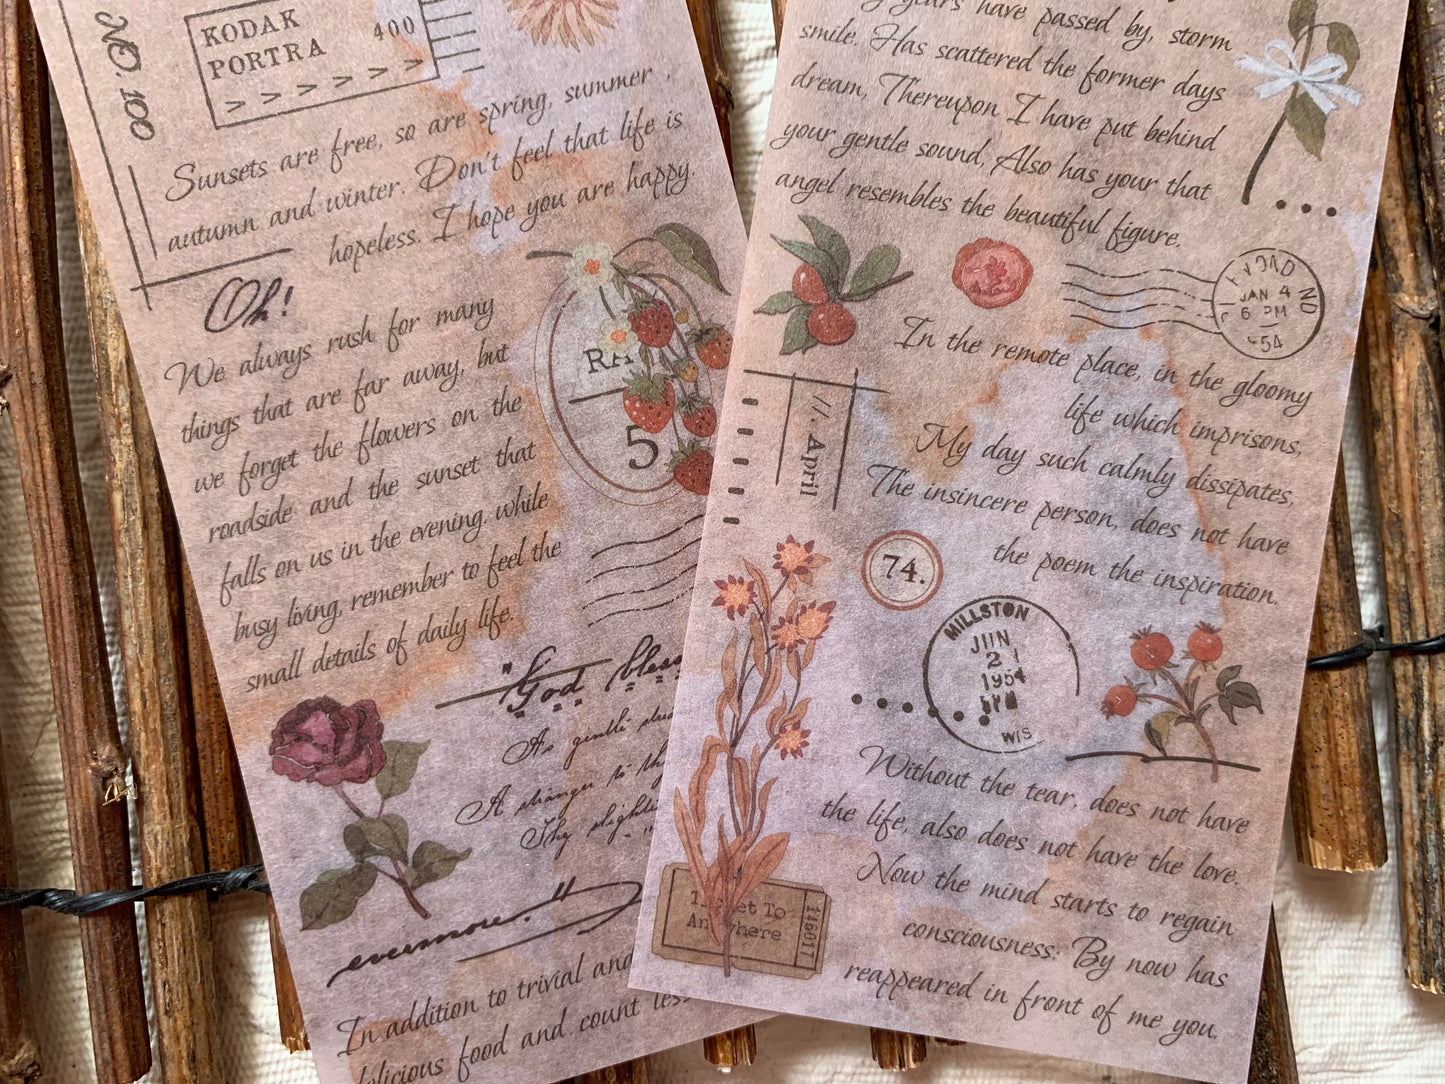 NO.100
KODAK
PORTRA 400
> > > > > >
Sunsets are free, so are spring, summer ,
autumn and winter. Don't feel that life is
hopeless. I hope you are happy.
Oh!
We always rush for many
things that are far away, but
we forget the flowers on the
roadside and the sunset that
falls on us in the evening, while
busy living, remember to feel the
small details of daily life.
RA
5
"God bless
As gentle
A stranger to th
Thy slight
evermore."
In addition to trivial and
delicious food and count less
years have passed by, storm
smile. Has scattered the former days
dream, Thereupon I have put behind
your gentle sound, Also has your that
angel resembles the beautiful figure.
JAN 4
6 PM
54
ND
In the remote place, in the gloomy
life which imprisons,
My day such calmly dissipates,
The insincere person, does not have
the poem the inspiration.
///. April
74.
MILLSTON
JUN
21
1954
PM
WIS
Without the tear, does not have
the life, also does not have the love.
Now the mind starts to regain
consciousness: By now has
reappeared in front of me you.
Ticket To
Anywhere
14601T